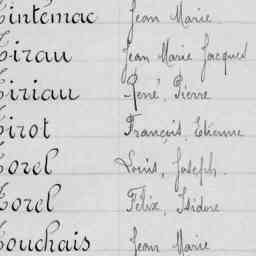 Tintemac Jean Marie.
Tirau Jean Marie Jacques
Tiriau René, Pierre
Tirot François, Etienne
Torel Louis, Joseph.
Torel Félix, Isidore
Touchais Jean Marie